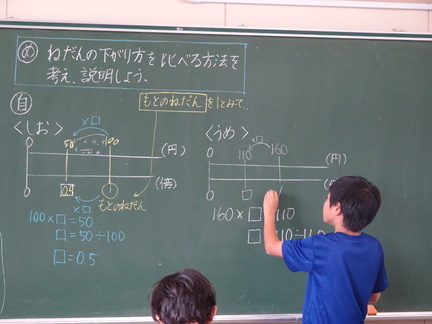 め ねだんの下がり方を比べる方法を
考え、説明しよう。
自 もとのねだんを1とみて
<しお>
×□
0 50 100 (円)
0 0.5 (倍)
×□ もとのねだん
100×□=50
□=50÷100
□=0.5
<うめ>
×□
0 110 160 (円)
0 □
160×□ 110
□